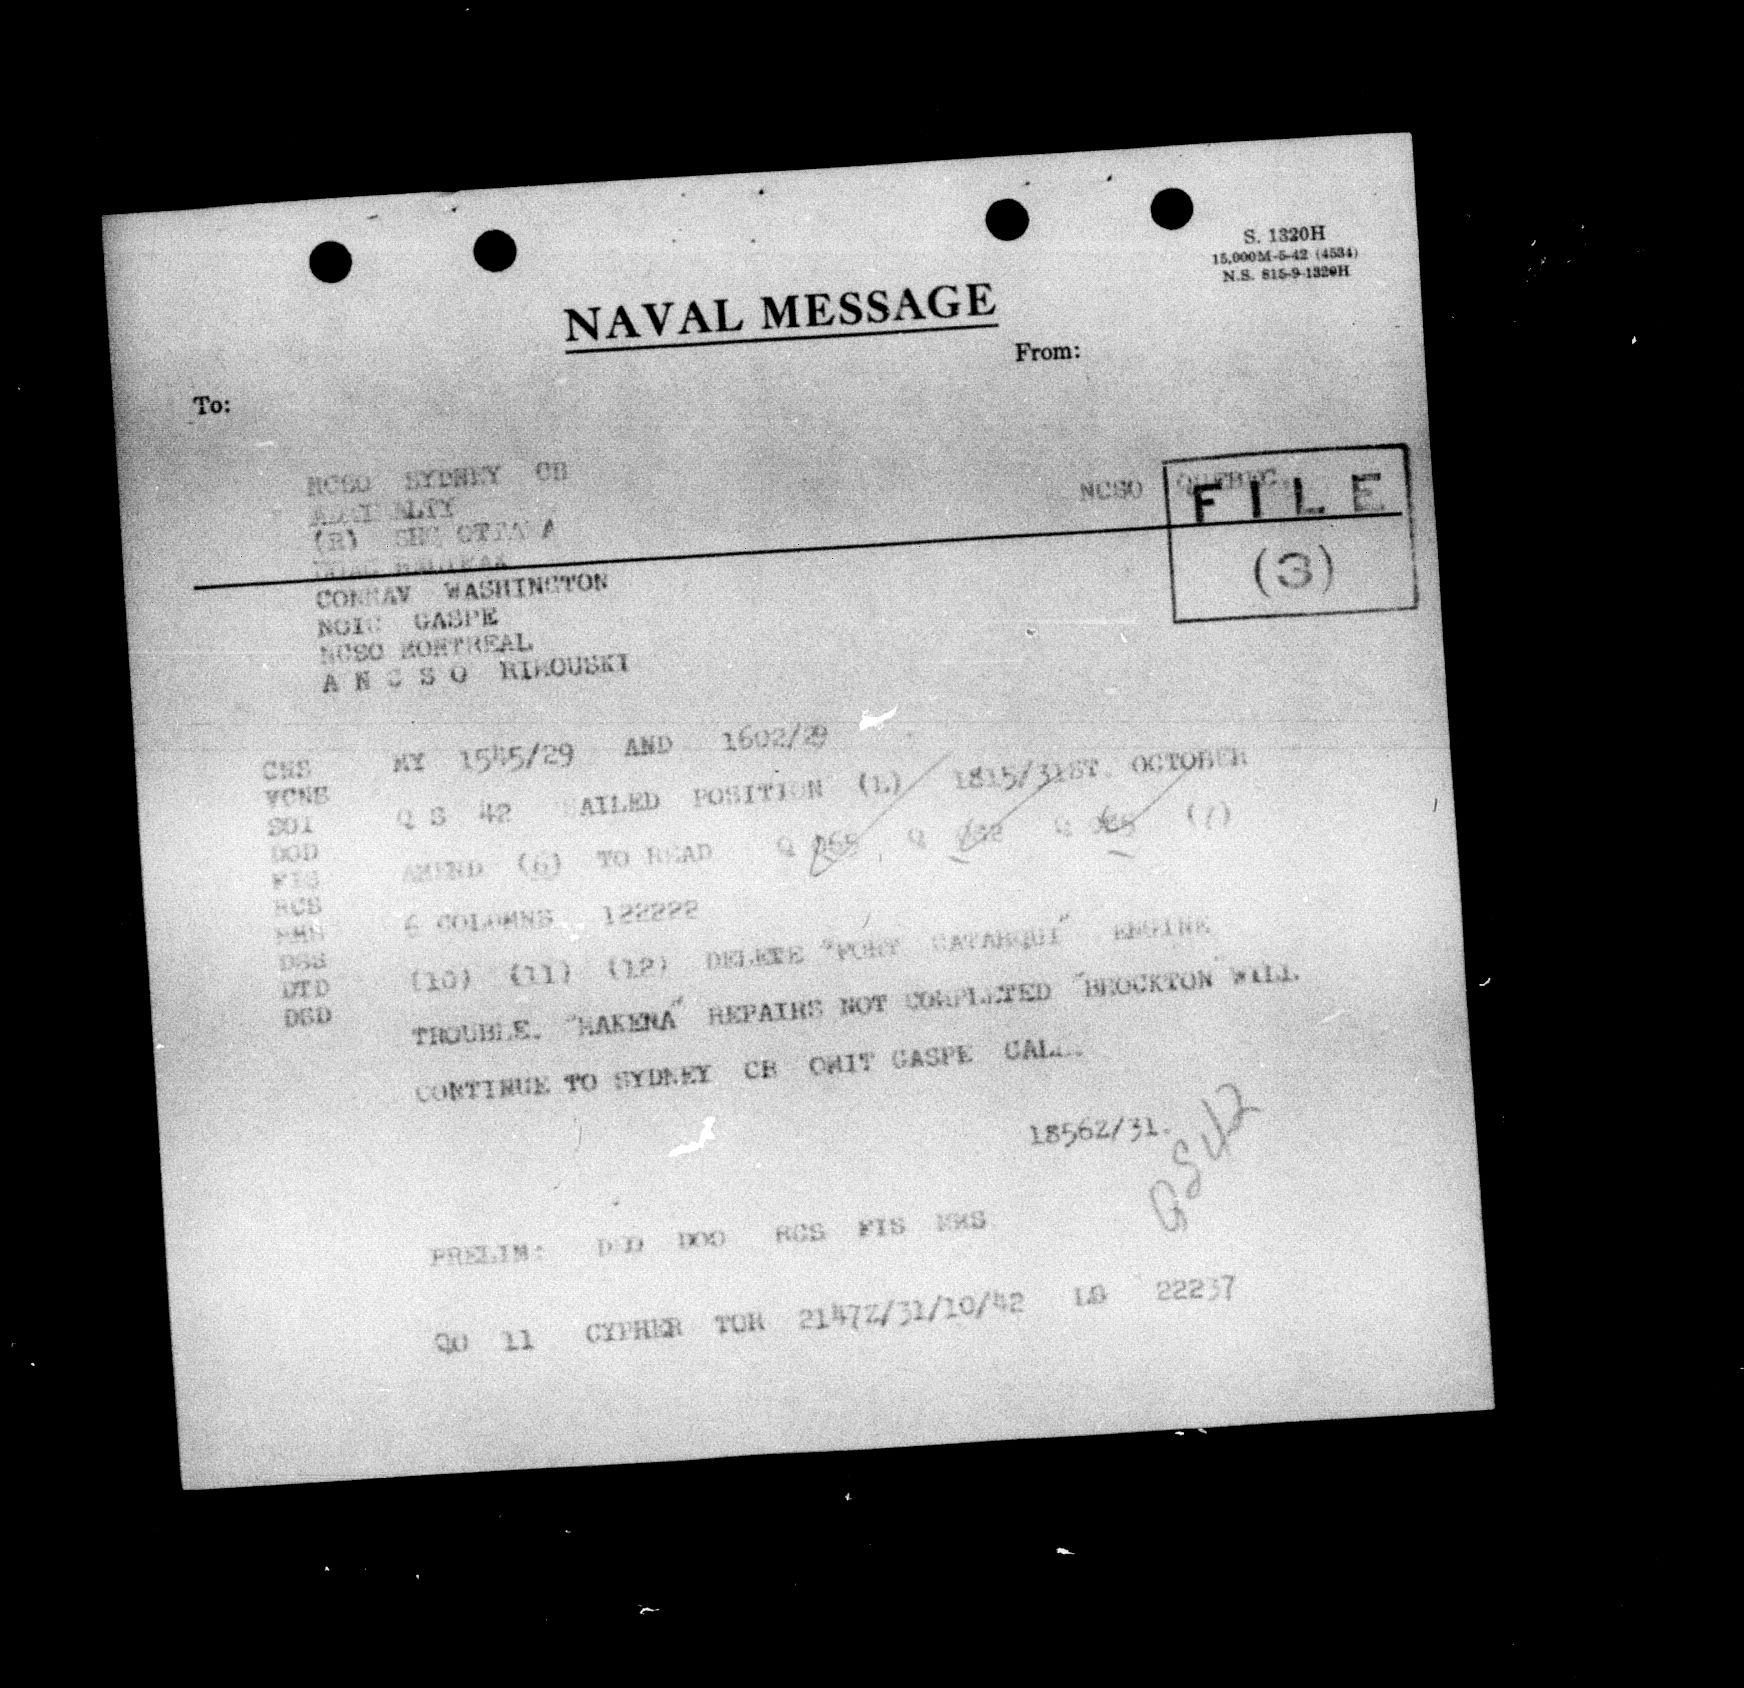 S. 1320H
15,000M-5-42 (4534)
N.S. 815-9-1320H
NAVAL MESSAGE
From:
To:
NCSO SYDNEY CB
NCSO QUEBEC.
FILE
(3)
ADMIRALTY
(R) SHQ OTTAWA
HALIFAX
COMNAV WASHINGTON
NOIC GASPE
NCSO MONTREAL
A N C S O RIMOUSKI
CNS MY 1545/29 AND 1602/29
VCNS
SOI Q S 42 SAILED POSITION (L) 1815/31ST. OCTOBER
DOD
FIS AMEND (6) TO READ Q Q Q (7)
RCS
6 COLUMNS 122222
DSS
DTD (10) (11) (12) DELETE "FORT CATARAQUI" ENGINE
DSD
TROUBLE. "MAKENA" REPAIRS NOT COMPLETED "BROCKTON" WILL
CONTINUE TO SYDNEY CB OMIT GASPE CALL.
1856Z/31.
QS42
PRELIM: DSD DOO RCS FIS
QU 11 CYPHER TOR 2147Z/31/10/42 LB 22237